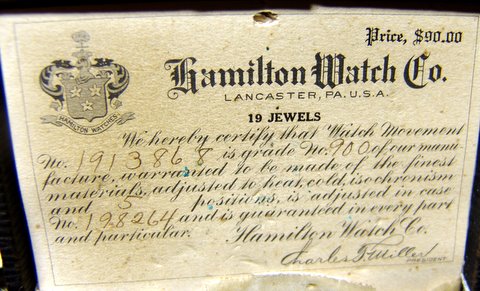 Price, $90.00
Hamilton Watch Co.
LANCASTER, PA. U.S.A.
HAMILTON WATCHES
19 JEWELS
We hereby certify that Watch Movement
No. 1913868 is grade No. 900 of our manu-
facture, warranted to be made of the finest
materials, adjusted to heat, cold, isochronism
and 5 positions, is adjusted in case
No. 198264 and is guaranteed in every part
and particular. Hamilton Watch Co.
Charles F. Miller
PRESIDENT.